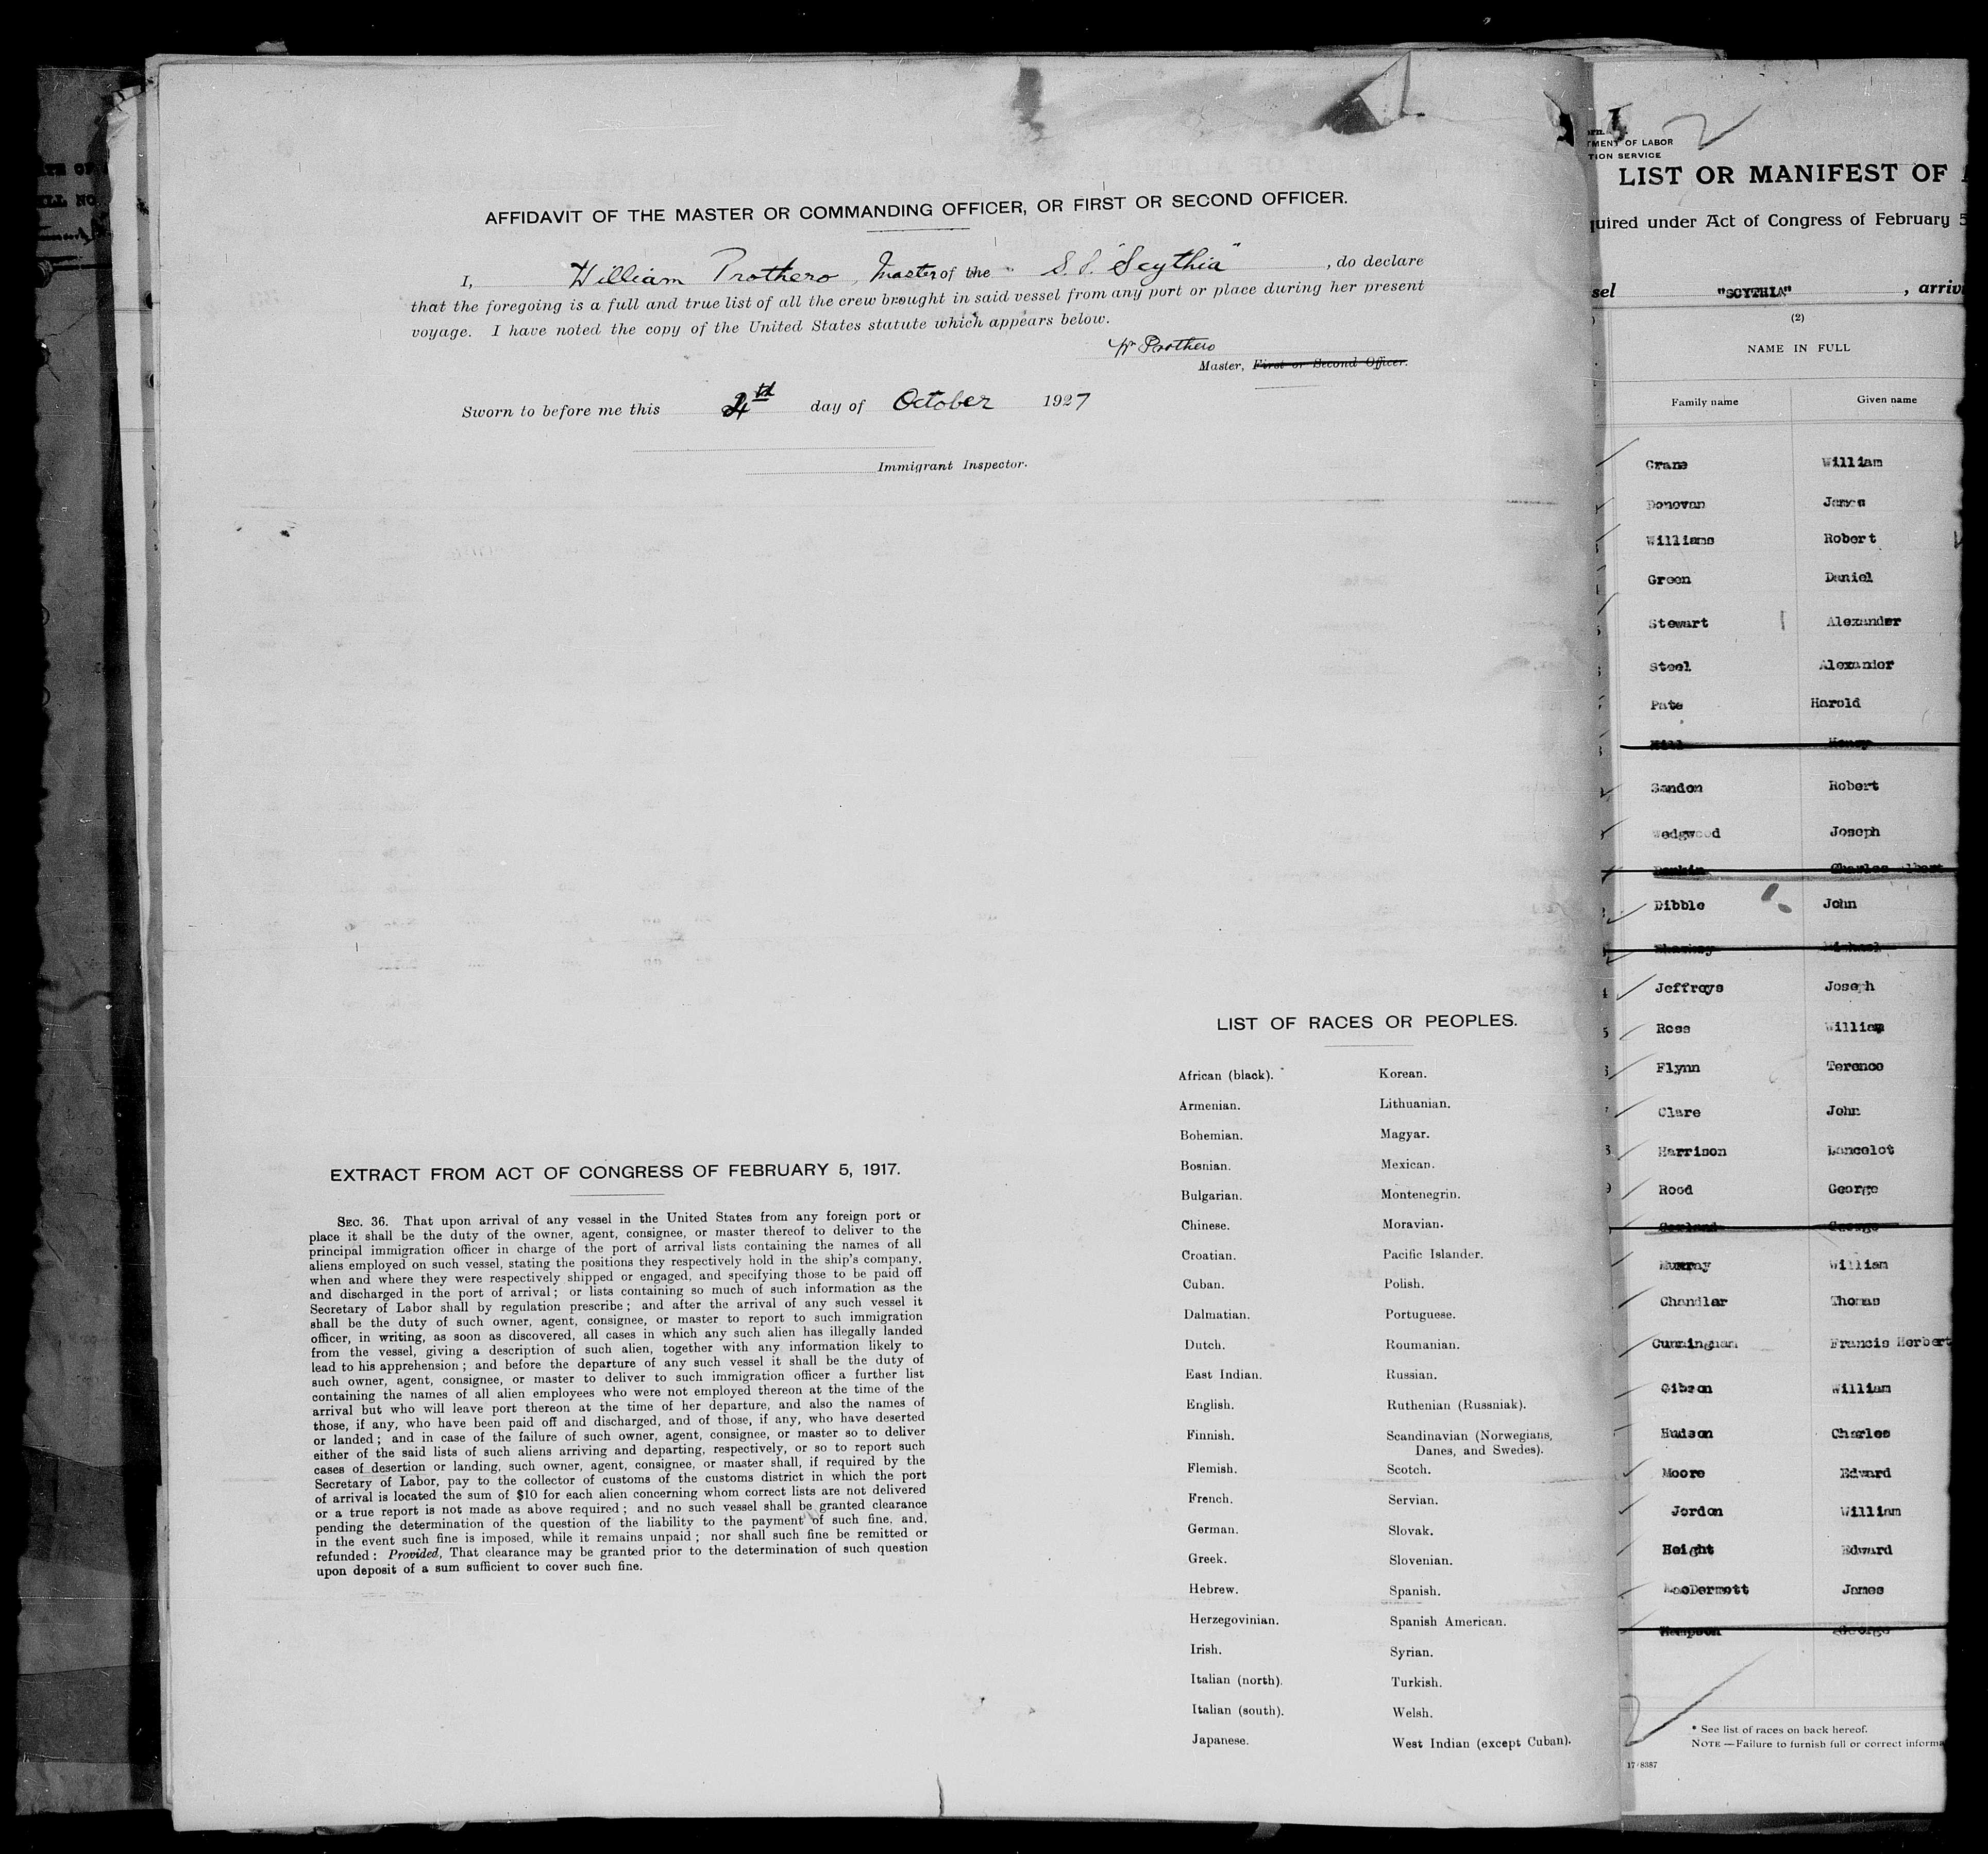 AFFIDAVIT OF THE MASTER OR COMMANDING OFFICER, OR FIRST OR SECOND OFFICER.
I, William Prothero, Master of the S.S. "Scythia", do declare
that the foregoing is a full and true list of all the crew brought in said vessel from any port or place during her present
voyage. I have noted the copy of the United States statute which appears below.
Wm Prothero
Master, First or Second Officer.
Sworn to before me this day of October 1927
Immigrant Inspector.
EXTRACT FROM ACT OF CONGRESS OF FEBRUARY 5, 1917.
SEC. 36. That upon arrival of any vessel in the United States from any foreign port or
place it shall be the duty of the owner, agent, consignee, or master thereof to deliver to the
principal immigration officer in charge of the port of arrival lists containing the names of all
aliens employed on such vessel, stating the positions they respectively hold in the ship's company,
when and where they were respectively shipped or engaged, and specifying those to be paid off
and discharged in the port of arrival; or lists containing so much of such information as the
Secretary of Labor shall by regulation prescribe; and after the arrival of any such vessel it
shall be the duty of such owner, agent, consignee, or master to report to such immigration
officer, in writing, as soon as discovered, all cases in which any such alien has illegally landed
from the vessel, giving a description of such alien, together with any information likely to
lead to his apprehension; and before the departure of any such vessel it shall be the duty of
such owner, agent, consignee, or master to deliver to such immigration officer a further list
containing the names of all alien employees who were not employed thereon at the time of the
arrival but who will leave port thereon at the time of her departure, and also the names of
those, if any, who have been paid off and discharged, and of those, if any, who have deserted
or landed; and in case of the failure of such owner, agent, consignee, or master so to deliver
either of the said lists of such aliens arriving and departing, respectively, or so to report such
cases of desertion or landing, such owner, agent, consignee, or master shall, if required by the
Secretary of Labor, pay to the collector of customs of the customs district in which the port
of arrival is located the sum of $10 for each alien concerning whom correct lists are not delivered
or a true report is not made as above required; and no such vessel shall be granted clearance
pending the determination of the question of the liability to the payment of such fine, and,
in the event such fine is imposed, while it remains unpaid; nor shall such fine be remitted or
refunded: Provided, That clearance may be granted prior to the determination of such question
upon deposit of a sum sufficient to cover such fine.
LIST OF RACES OR PEOPLES.
African (black). Korean.
Armenian. Lithuanian.
Bohemian. Magyar.
Bosnian. Mexican.
Bulgarian. Montenegrin.
Chinese. Moravian.
Croatian. Pacific Islander.
Cuban. Polish.
Dalmatian. Portuguese.
Dutch. Roumanian.
East Indian. Russian.
English. Ruthenian (Russniak).
Finnish. Scandinavian (Norwegians,
Danes, and Swedes).
Flemish. Scotch.
French. Servian.
German. Slovak.
Greek. Slovenian.
Hebrew. Spanish.
Herzegovinian. Spanish American.
Irish. Syrian.
Italian (north). Turkish.
Italian (south). Welsh.
Japanese. West Indian (except Cuban).
2
TMENT OF LABOR
TION SERVICE
LIST OR MANIFEST OF
quired under Act of Congress of February 5
sel "SCYTHIA", arriv
(2)
NAME IN FULL
Family name Given name
Crane William
Donovan James
Williams Robert
Green Daniel
Stewart Alexander
Steel Alexander
Pate Harold
Hill Henry
Sandon Robert
Wedgwood Joseph
Charles Albert
Dibble John
Michael
Jeffreys Joseph
Ross William
Flynn Terence
Clare John
Harrison Lancelot
Rood George
Garland George
Murray William
Chandler Thomas
Cunningham Francis Herbert
Gibson William
Hudson Charles
Moore Edward
Jordon William
Height Edward
MacDermott James
George
* See list of races on back hereof.
NOTE—Failure to furnish full or correct informa
17-8387